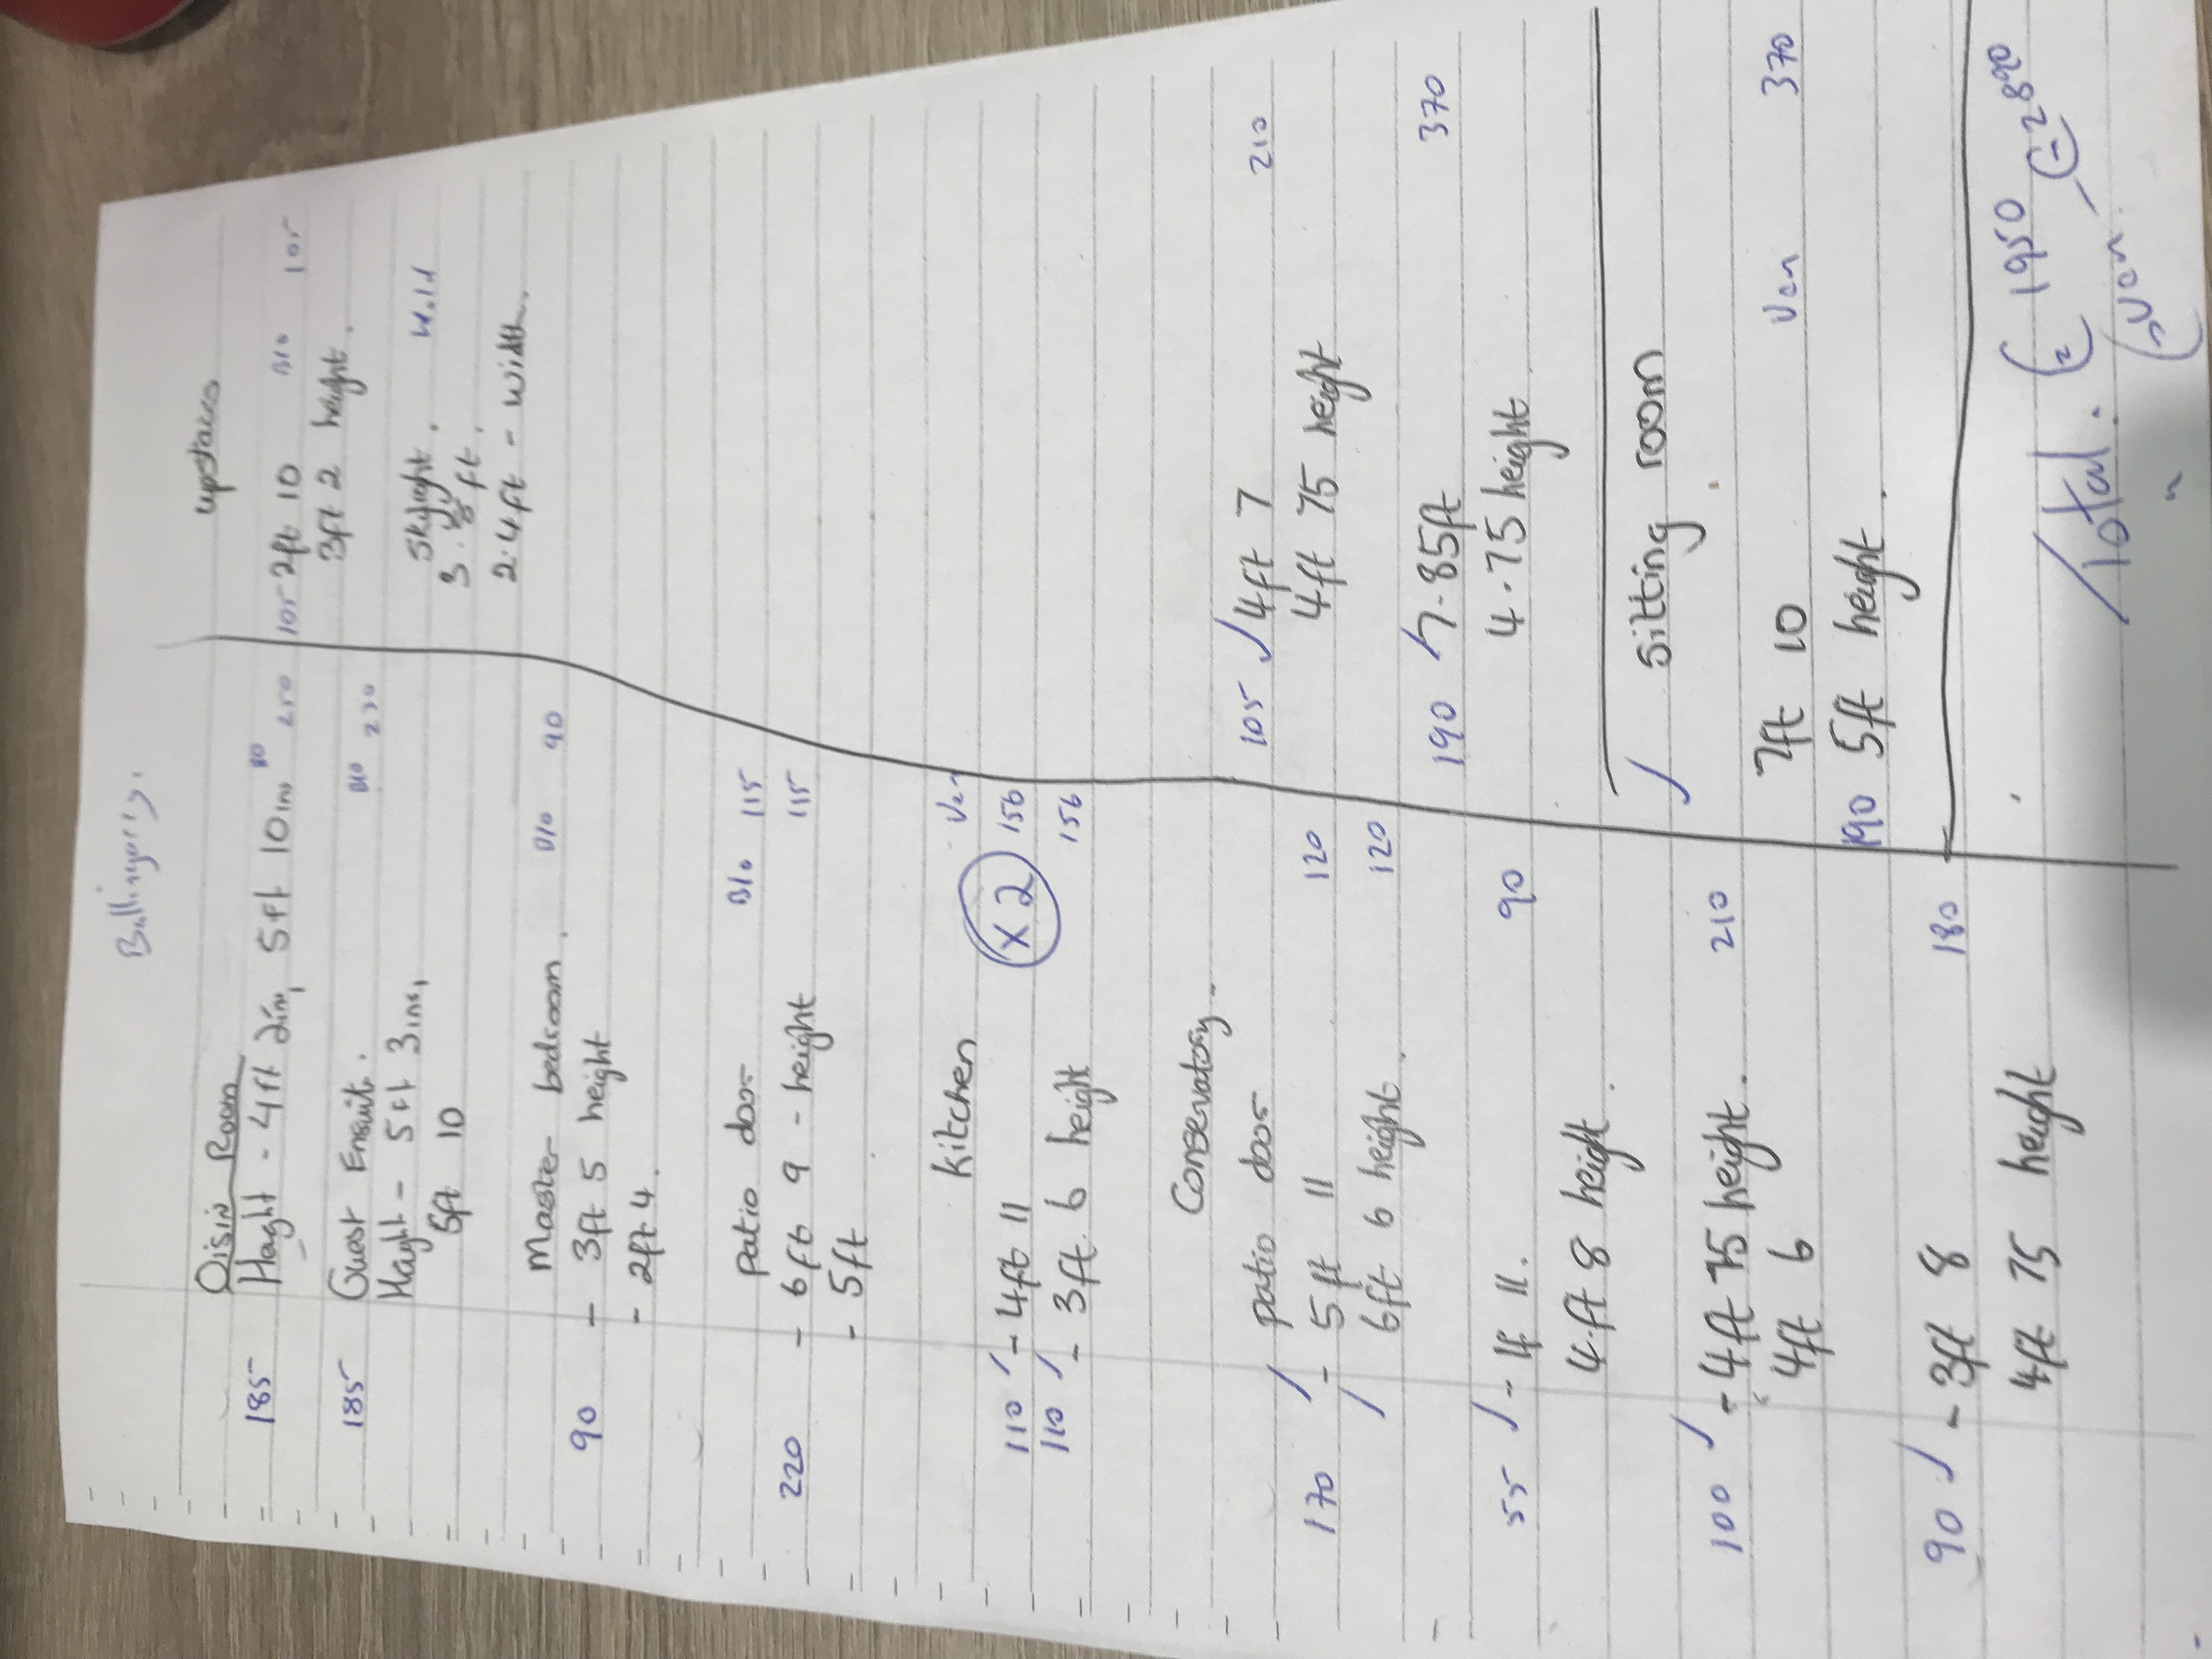 Oisin Room
185 Haght - 4ft 2in, 5ft 10ins 250
185 Guest Ensuit. B/o 230
Haght - 5ft 3ins,
5ft 10
Master bedroom. B/o 90
90 - 3ft 5 height
- 2ft 4.
Patio door B/o 115
220 - 6ft 9 - height 115
- 5ft
Kitchen Ven
110 / - 4ft 11 X2 156
110 / - 3ft. 6 height 156
Conservatory -
patio door
170 / - 5ft 11 120
/ 6ft 6 height. 120
55 / - 4 11. 90
4.ft 8 height.
100 / - 4ft 75 height. 210
4ft 6
90 / - 3ft 8 180
4ft 75 height
upstairs
105 2ft 10 B/o 105
3ft 2 height.
Skylight.
ft.
2.4ft - width.
105 / 4ft 7 210
4ft 75 height
190 / 7.85ft 370
4.75 height
/ Sitting room
7ft 10 Ven 370
190 5ft height.
Total. 1950 - 2890
Ven